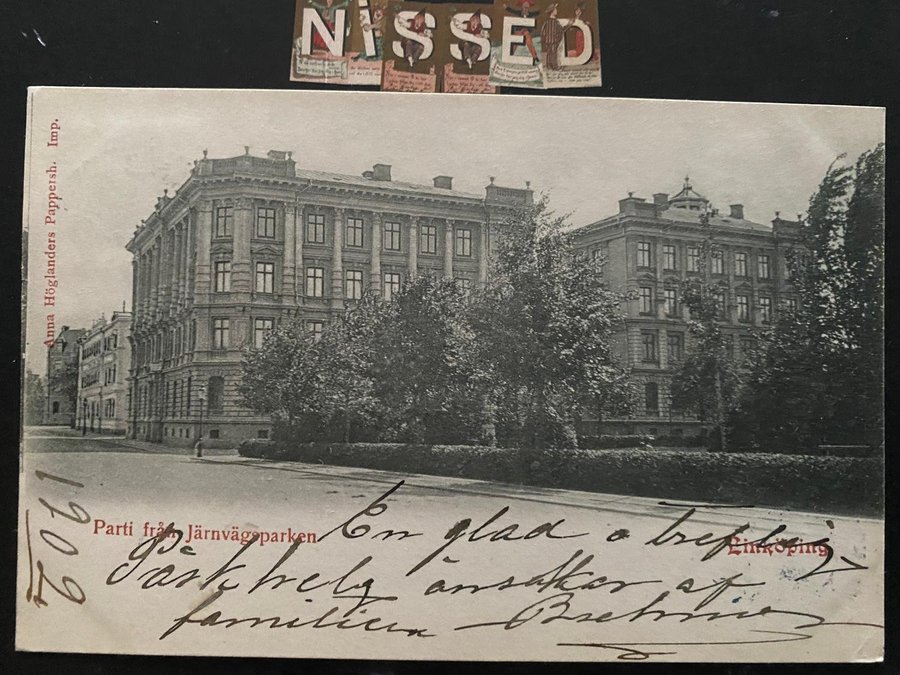 NISSED
Anna Höglanders Pappersh. Imp.
Parti från Järnvägsparken
Linköping
1902
En glad o trefлig
Påskhelg önskar af
familien